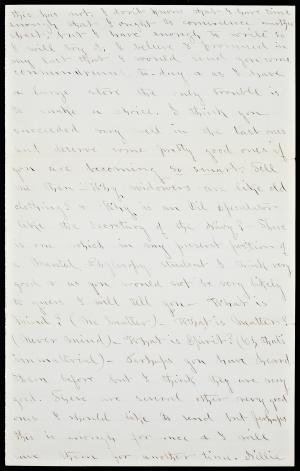 this has not. I don't know that I have time
enough that I ought to commence another
sheet, but I have enough to write so
I will try it. I believe I promised in
my last that I would send you some
conundrums to-day & as I have
a large store the only trouble is
to make a choice. I think you
succeeded very well in the last ones
and deserve some pretty good ones if
you are becoming so smart. Tell
me then - Why widowers are like old
clothing? & Why is an oil speculator
like the Secretary of the Navy? There
is one which in my present position of
a Mental Philosophy student I think very
good & as you would not be very likely
to guess I will tell you - What is
Mind? (No Matter) - What is Matter?
(Never Mind) - What is Spirit? (Oh that's
immaterial) - Perhaps you have heard
them before but I think they are very
good. There are several other very good
ones I should like to send but perhaps
this is enough for once & I will
save them for another time. Nillie